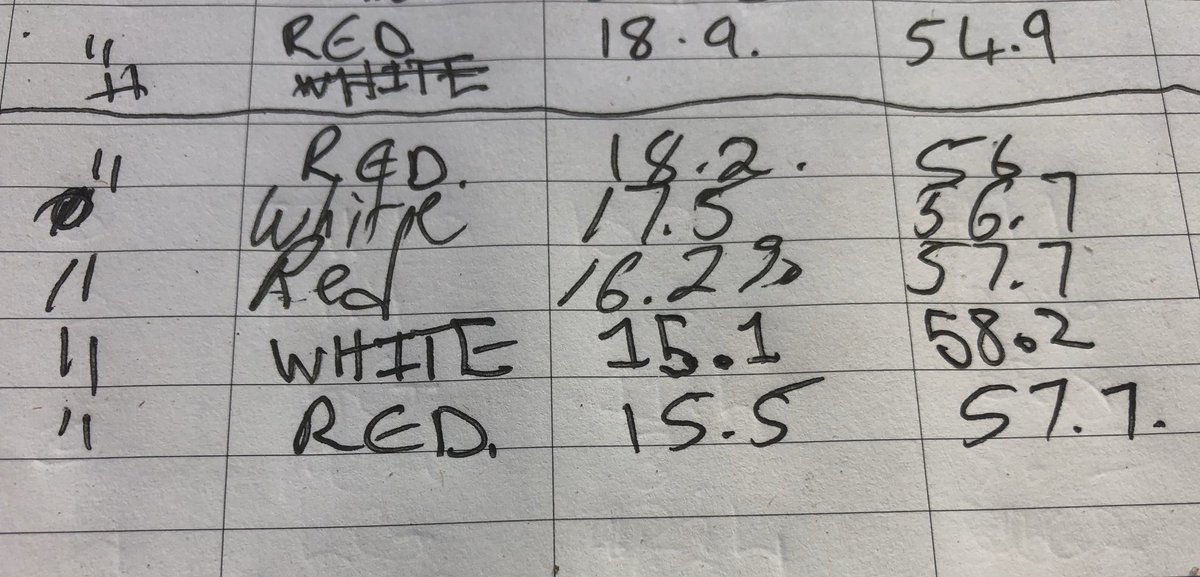 " RED 18.9. 54.9
" WHITE
" RED. 18.2. 56
White 17.5 56.7
" Red 16.2% 57.7
" WHITE 15.1 58.2
" RED. 15.5 57.7.